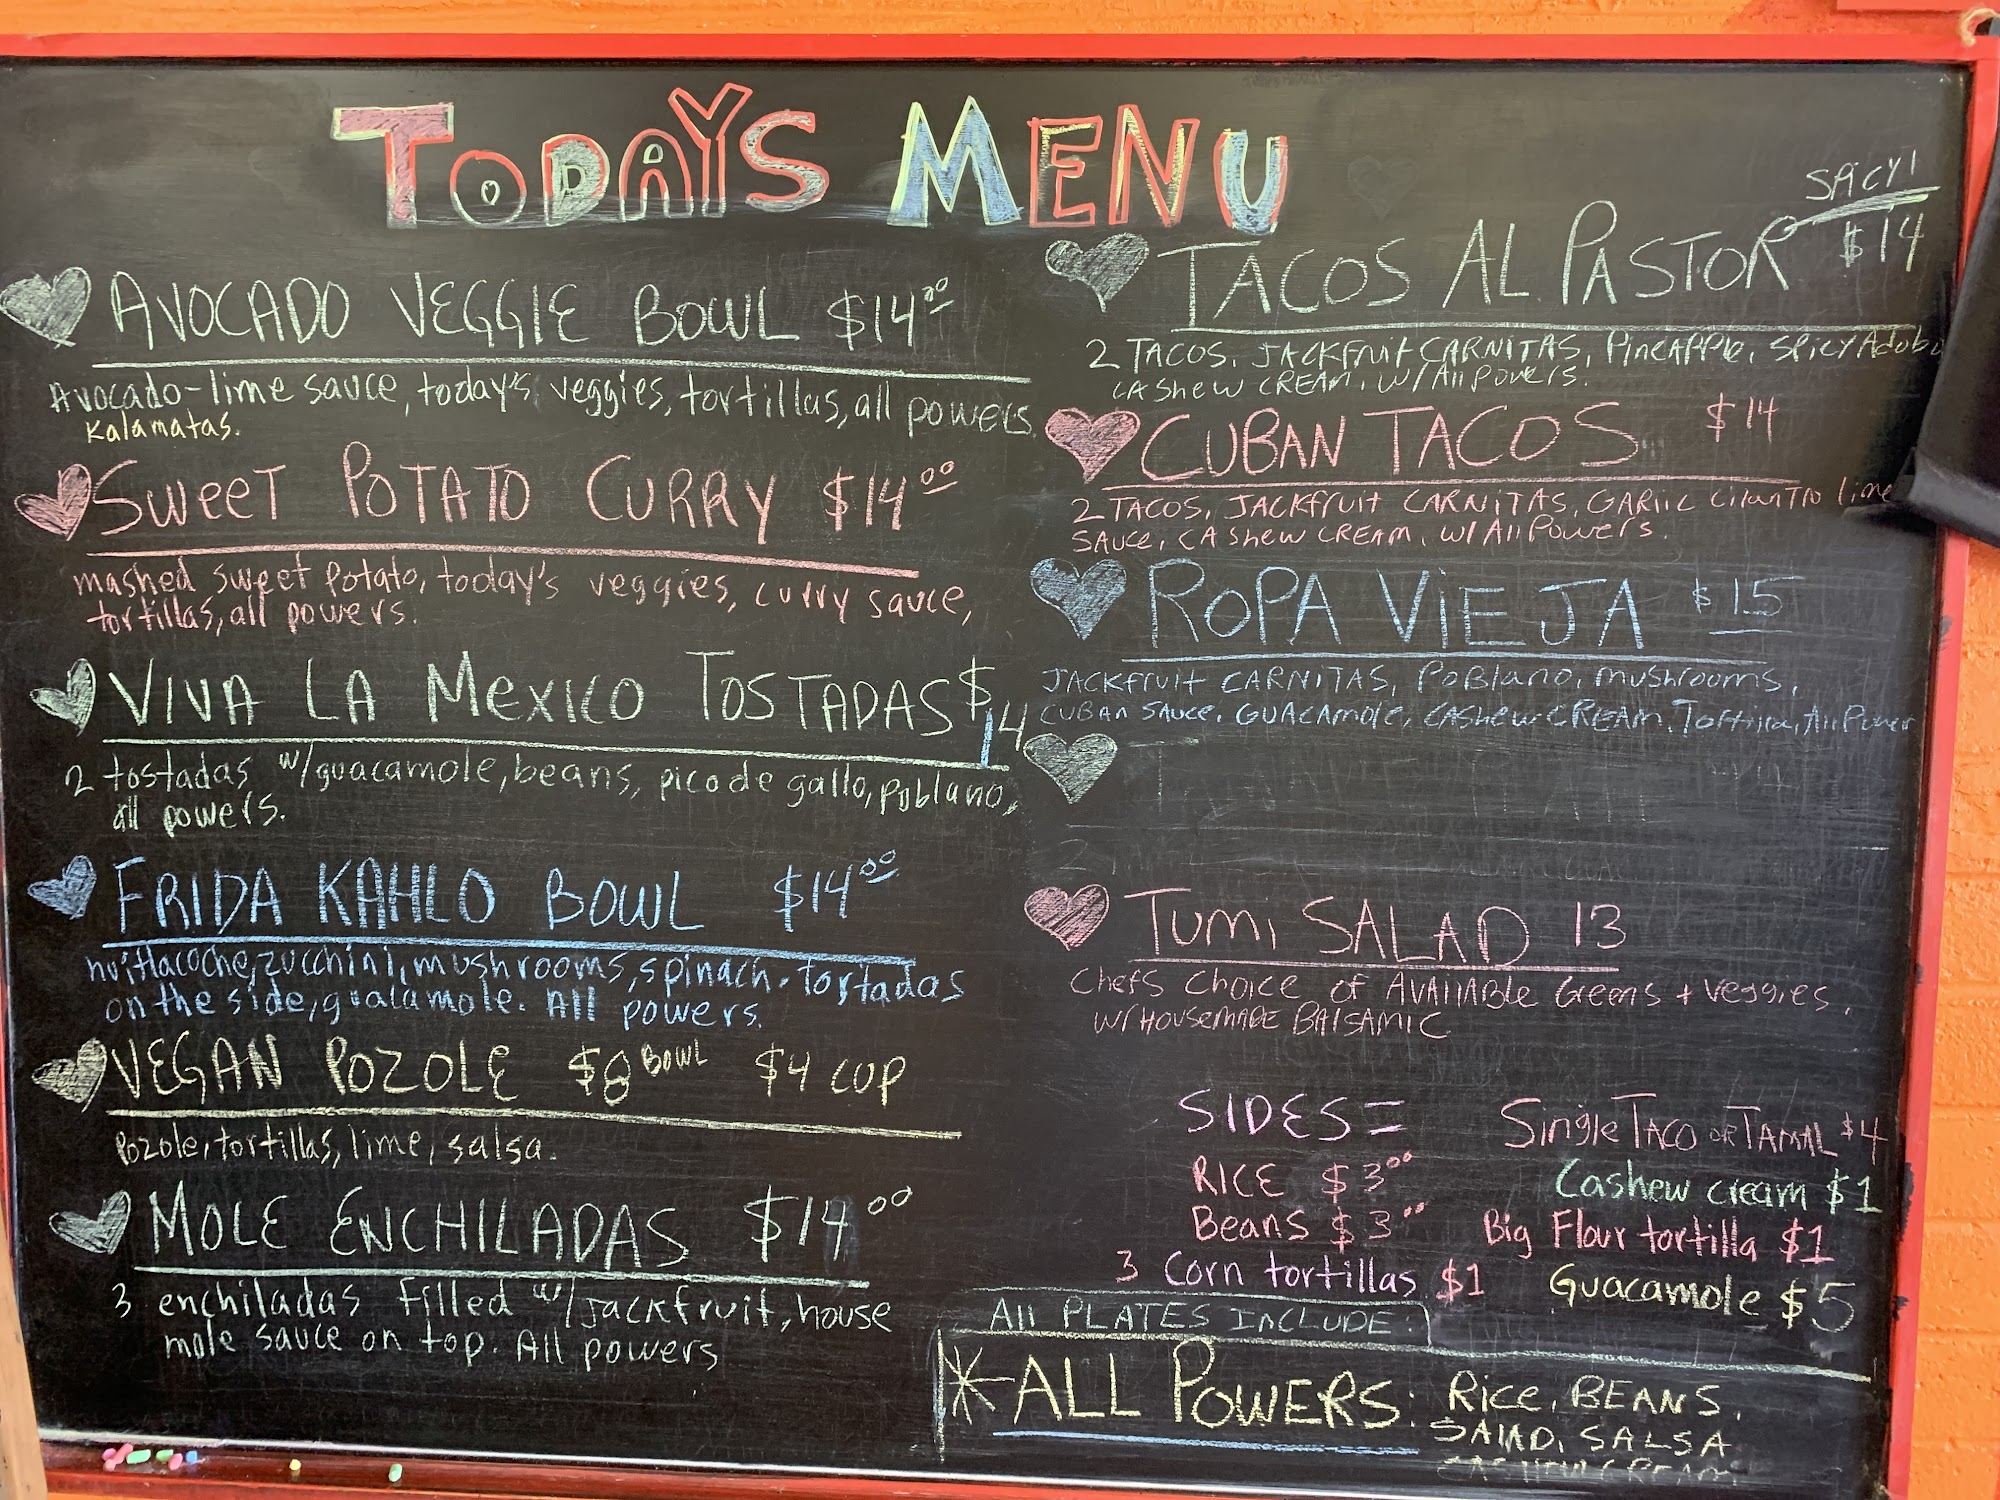 TODAYS MENU
AVOCADO VEGGIE BOWL $14.00
Avocado-lime sauce, today's veggies, tortillas, all powers.
Kalamatas.
SWEET POTATO CURRY $14.00
mashed sweet potato, today's veggies, curry sauce,
tortillas, all powers.
VIVA LA MEXICO TOSTADAS $14
2 tostadas w/guacamole, beans, pico de gallo, poblano,
all powers.
FRIDA KAHLO BOWL $14.00
huitlacoche, zucchini, mushrooms, spinach. tostadas
on the side, gualamole. All powers.
VEGAN POZOLE $8 BOWL $4 CUP
pozole, tortillas, lime, salsa.
MOLE ENCHILADAS $14.00
3 enchiladas filled w/jackfruit, house
mole sauce on top. All powers
SPICY!
TACOS AL PASTOR $14
2 TACOS, JACKfruit CARNITAS, PINEAPPLE, SPICY Adobo
CAShew CREAM, W/All Powers.
CUBAN TACOS $14
2 TACOS, JACKfruit CARNITAS, GARlic cilantro lime
SAUCE, CAShew CREAM, W/All Powers.
ROPA VIEJA $15
JACKfruit CARNITAS, Poblano, mushrooms,
CUBAN SAUCE, GUACAmole, CAShew CREAM, Tortilla, All Power
TUMI SALAD 13
Chefs Choice of AVAILABLE Greens + Veggies,
W/HOUSEMADE BALSAMIC
SIDES =
RICE $3.00
Beans $3.00
3 Corn tortillas $1
Single TACO OR TAMAL $4
Cashew cream $1
Big Flour tortilla $1
Guacamole $5
All PLATES INCLUDE:
*ALL POWERS: Rice, BEANS,
SALAD, SALSA
CASHEW CREAM